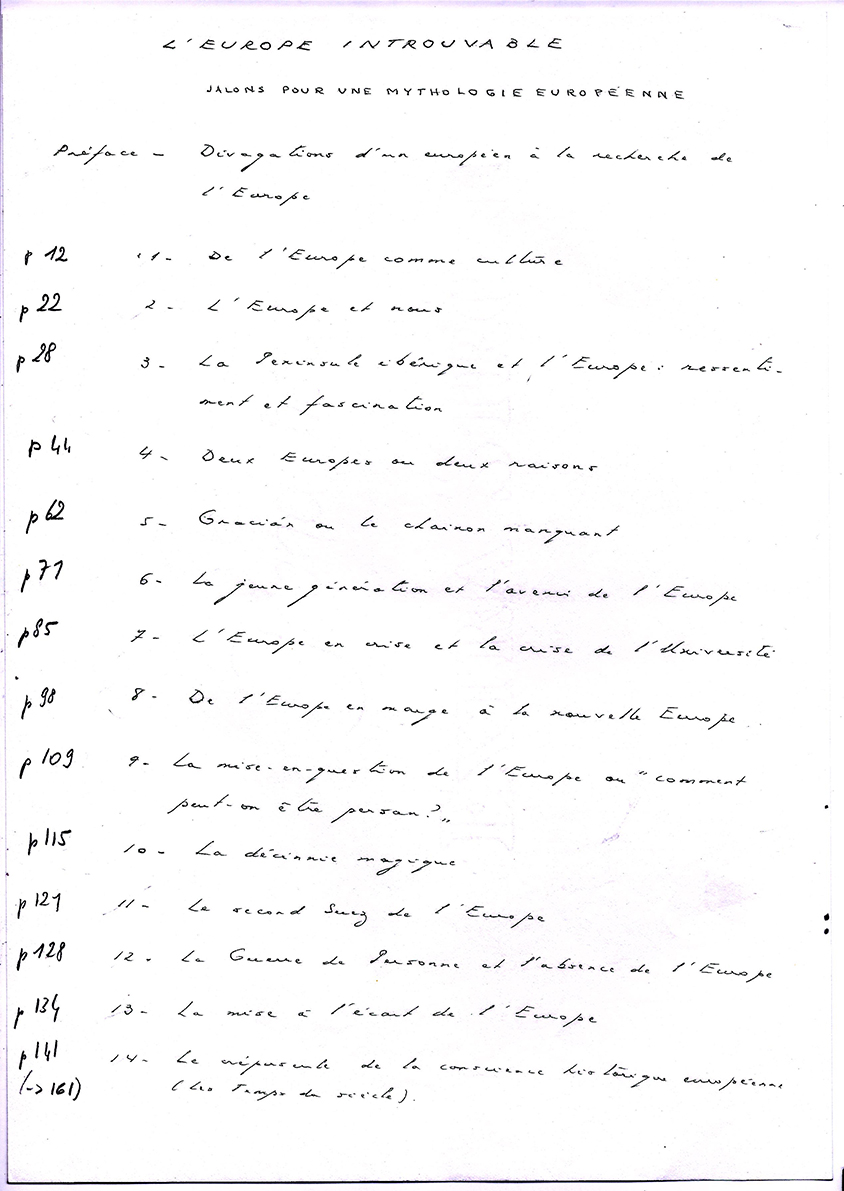 L'EUROPE INTROUVABLE
JALONS POUR UNE MYTHOLOGIE EUROPÉENNE
Préface - Divagations d'un européen à la recherche de
l'Europe
p 12 1 - De l'Europe comme culture
p 22 2 - L'Europe et nous
p 28 3 - La Péninsule ibérique et l'Europe : ressenti-
ment et fascination
p 44 4 - Deux Europes ou deux raisons
p 62 5 - Gracián ou le chainon manquant
p 71 6 - La jeune génération et l'avenir de l'Europe
p 85 7 - L'Europe en crise et la crise de l'Université
p 98 8 - De l'Europe en marge à la nouvelle Europe
p 109 9 - La mise-en-question de l'Europe ou "comment
peut-on être persan ?"
p 115 10 - La décennie magique
p 121 11 - Le second Suez de l'Europe
p 128 12 - La Guerre de Personne et l'absence de l'Europe
p 134 13 - La mise à l'écart de l'Europe
p 141 14 - Le crépuscule de la conscience historique européenne
(-> 161) (Les Temps du siècle).